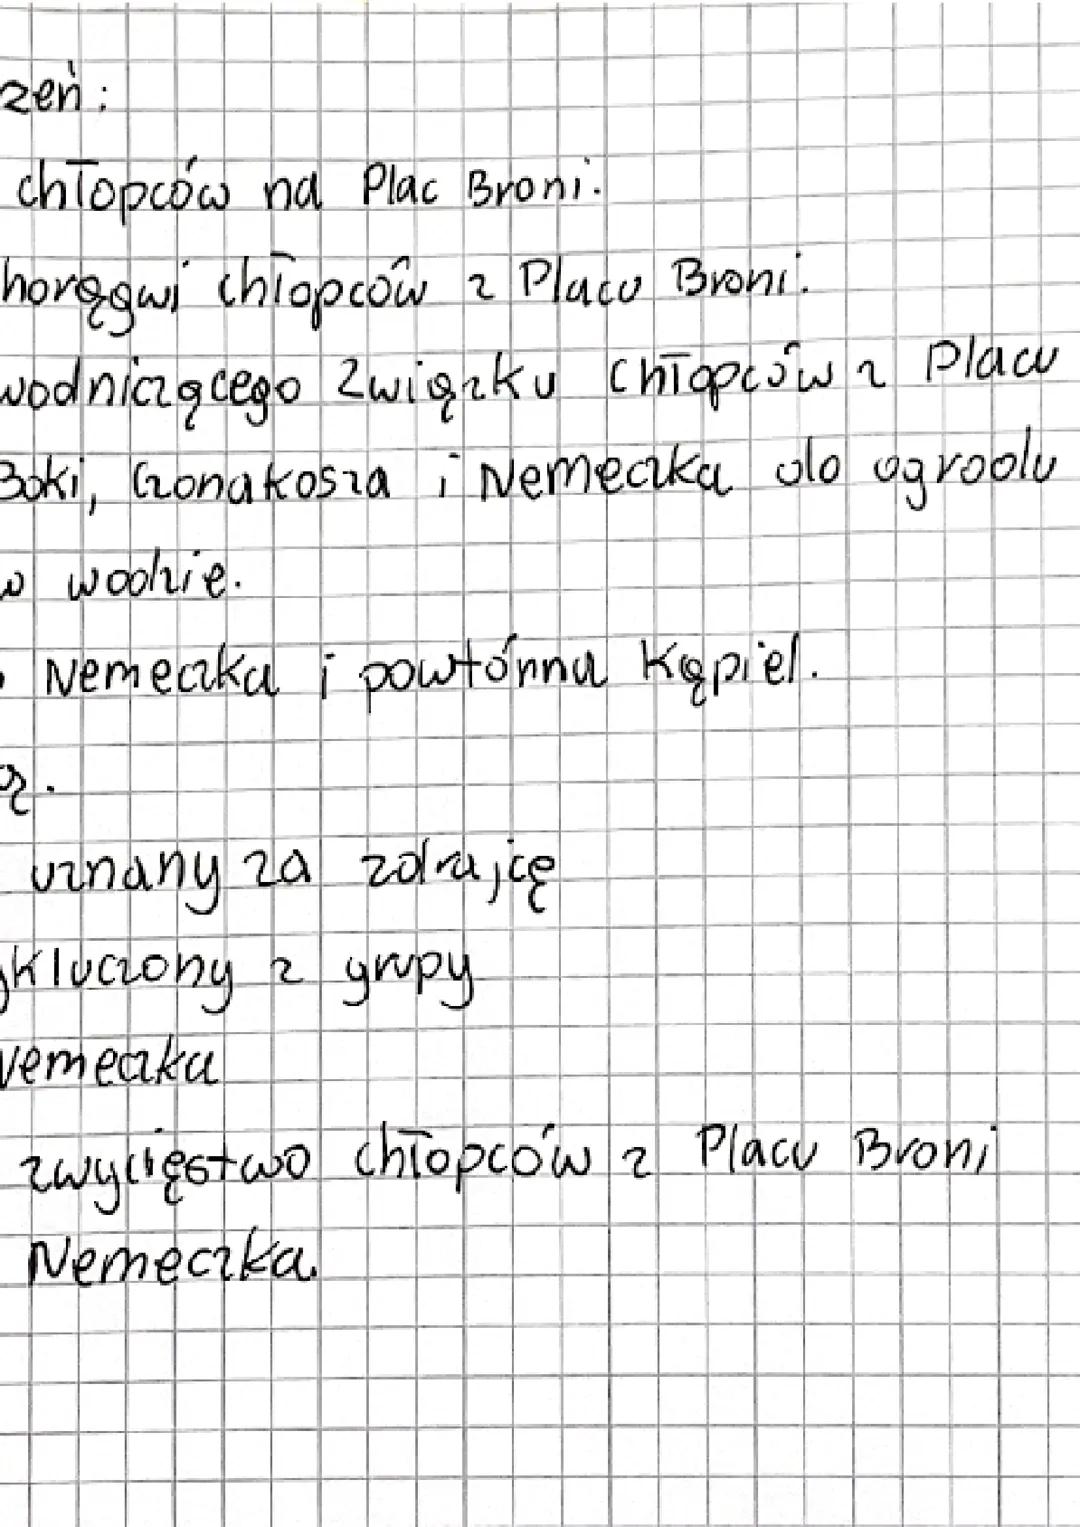 zeń:
chłopców na Plac Broni.
horęgwi chłopców z Placu Broni.
wodniczącego Związku Chłopców z Placu
Boki, Czonakosza i Nemeczka do ogrodu
w wodzie.
Nemeczka i powtórna Kąpiel.
ą.
uznany za zdrajcę
ykluczony z grupy
Nemeczka
zwycięstwo chłopców z Placu Broni
Nemeczka.